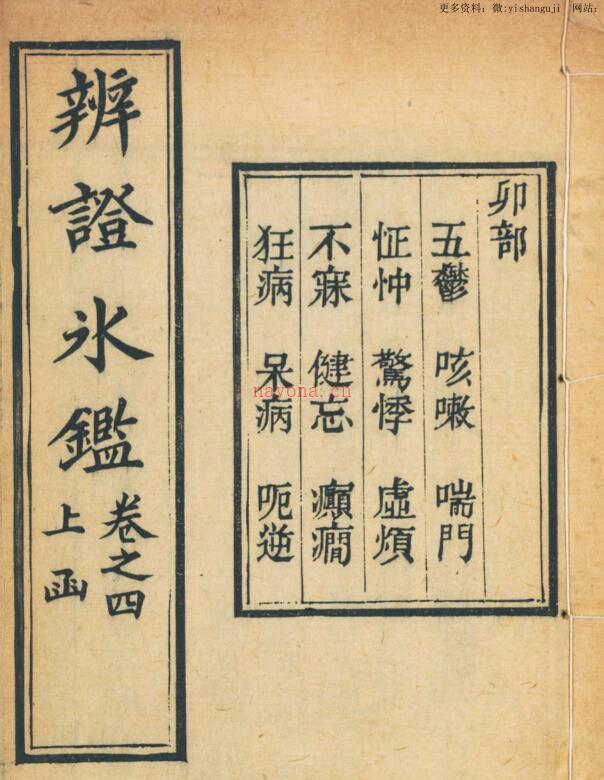 更多资料：微:yishanguji 网站：
卯部
五鬱 咳嗽 喘門
怔忡 驚悸 虛煩
不寐 健忘 癲癇
狂病 呆病 呃逆
辨證氷鑑
卷之四
上函
nayona.cn